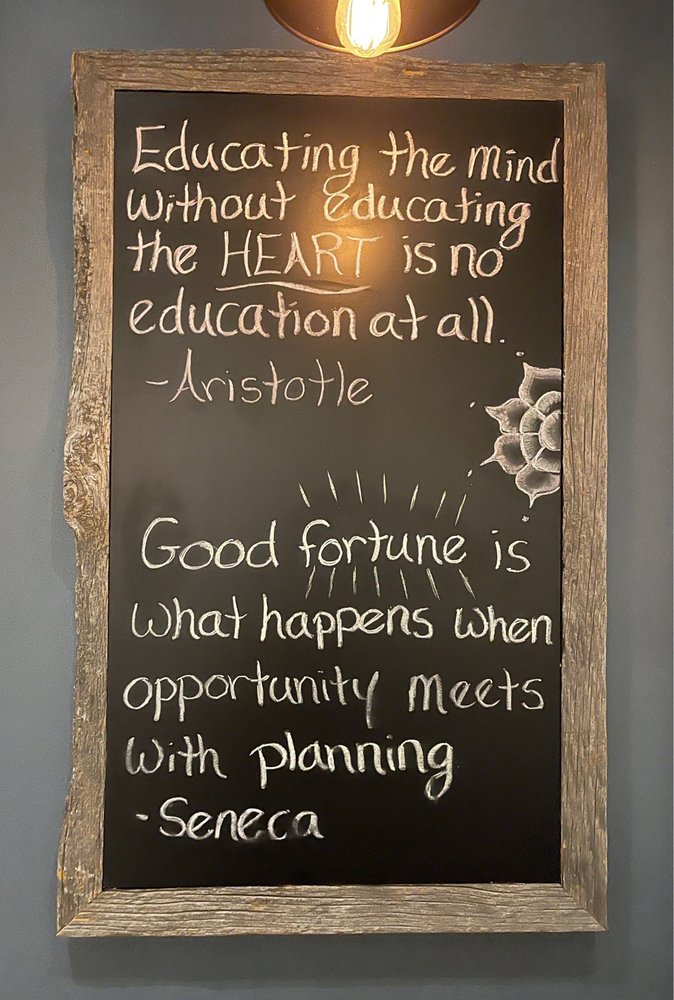 Educating the mind
without educating
the HEART is no
education at all.
-Aristotle
Good fortune is
what happens when
opportunity meets
with planning
-Seneca